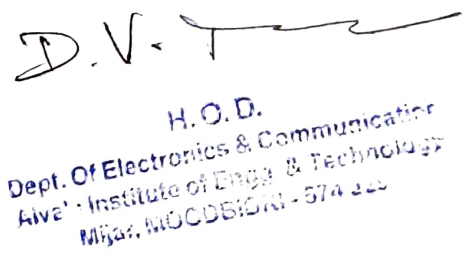 D. V.
H. O. D.
Dept. Of Electronics & Communication
Alva' Institute of Engg. & Technology
Mijar, MOODBIDRI - 574 225